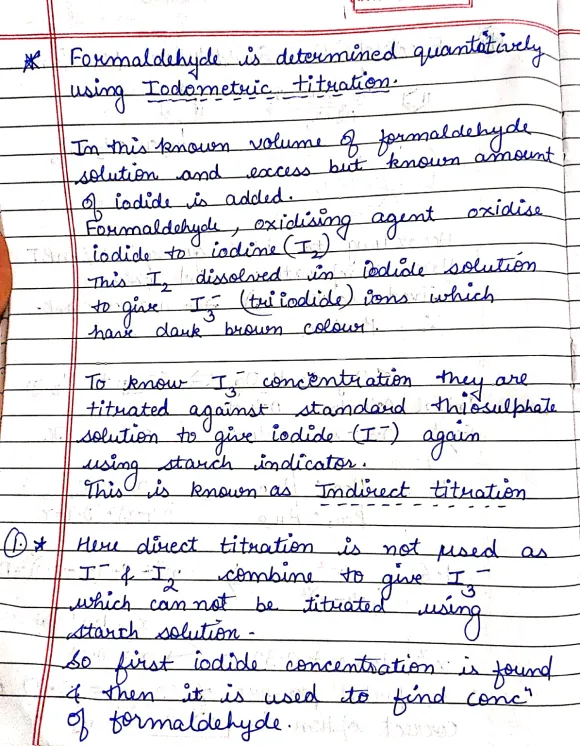 * Formaldehyde is determined quantatively
using Iodometric titration.
In this known volume of formaldehyde
solution and excess but known amount
of iodide is added.
Formaldehyde, oxidising agent oxidise
iodide to iodine (I₂)
This I₂ dissolved in iodide solution
to give I₃⁻ (triiodide) ions which
have dark brown colour.
To know I₃⁻ concentration they are
titrated against standard thiosulphate
solution to give iodide (I⁻) again
using starch indicator.
This is known as Indirect titration
①* Here direct titration is not used as
I⁻ & I₂ combine to give I₃⁻
which can not be titrated using
starch solution -
So first iodide concentration is found
& then it is used to find concⁿ
of formaldehyde.